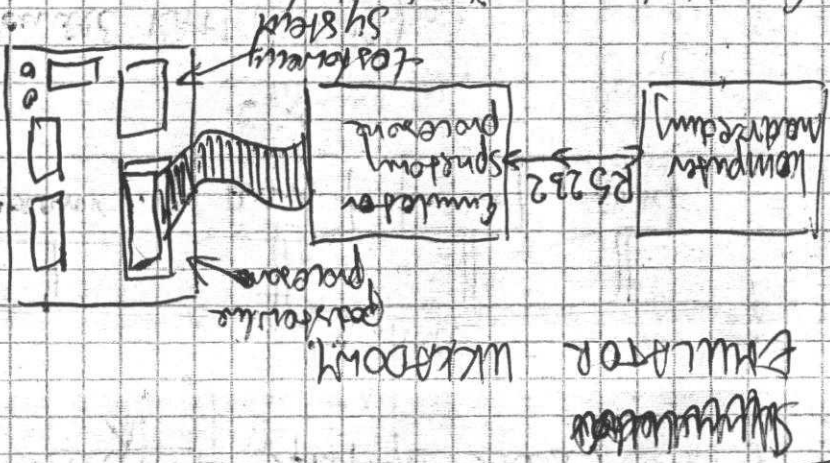 EMULATOR UKŁADOWY
podstawka
procesora
komputer
nadrzędny
RS232
Emulator
sprzętowy
procesora
testowany
system